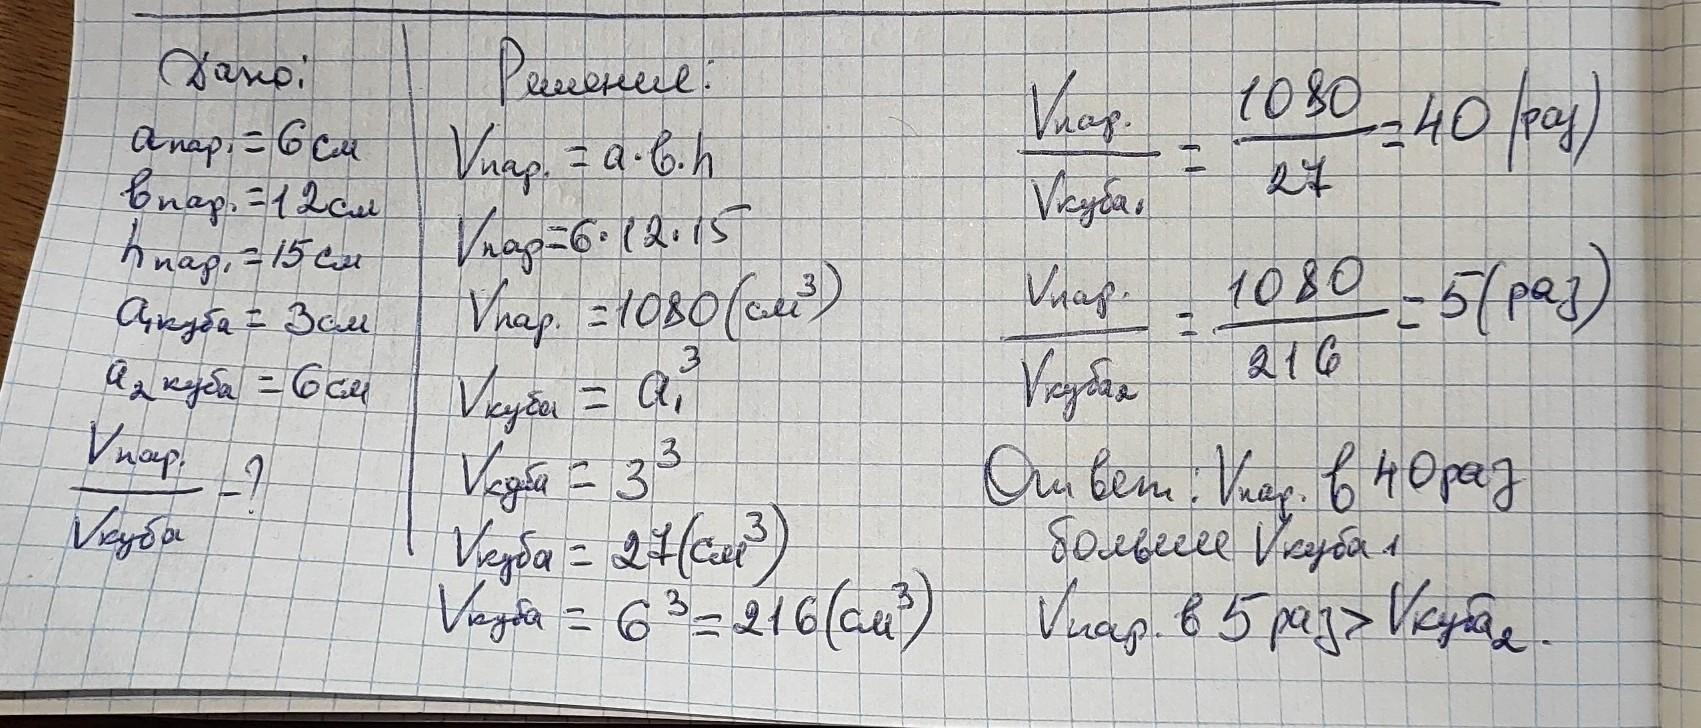 Дано:
aпар. = 6 см
bпар. = 12 см
hпар. = 15 см
a₁куба = 3 см
a₂ куба = 6 см
Vпар.
— - ?
Vкуба
Решение:
Vпар. = a · b · h
Vпар = 6 · 12 · 15
Vпар. = 1080 (см³)
Vкуба = a₁³
Vкуба = 3³
Vкуба = 27 (см³)
Vкуба = 6³ = 216 (см³)
Vпар. / Vкуба₁ = 1080 / 27 = 40 (раз)
Vпар. / Vкуба₂ = 1080 / 216 = 5 (раз)
Ответ: Vпар. в 40 раз
больше Vкуба 1
Vпар. в 5 раз > Vкуба₂.